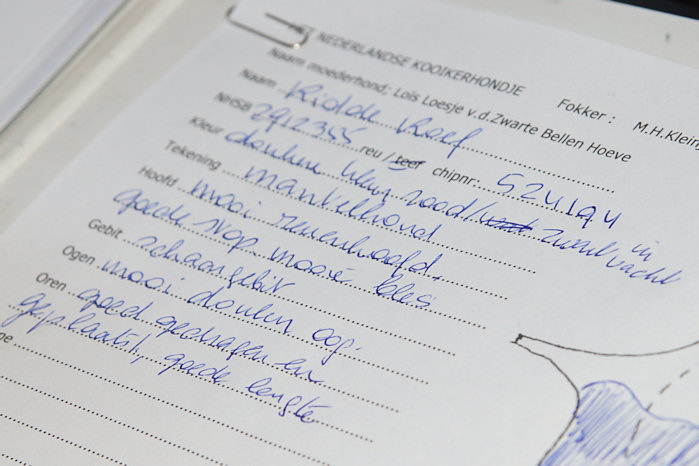 NEDERLANDSE KOOIKERHONDJE
Fokker : M.H.Klein
Naam moederhond; Loïs Loesje v.d.Zwarte Bellen Hoeve
Naam Ridde Roef
NHSB 2912355 reu / teef chipnr. 524194
Kleur donker rood / zwart in vacht
Tekening mantelhond
Hoofd mooi reuenhoofd,
goede stop mooie bles
Gebit schaargebit
Ogen mooi donker oog.
Oren goed gedragen en
geplaatst, goede lengte